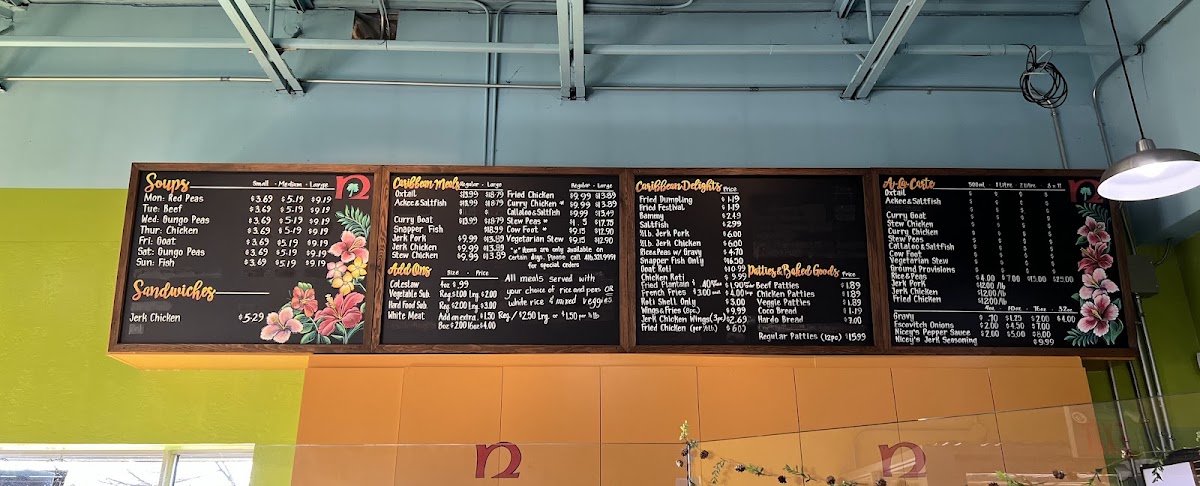 Soups Small · Medium · Large
Mon: Red Peas $3.69 $5.19 $9.19
Tue: Beef $3.69 $5.19 $9.19
Wed: Gungo Peas $3.69 $5.19 $9.19
Thur: Chicken $3.69 $5.19 $9.19
Fri: Goat $3.69 $5.19 $9.19
Sat: Gungo Peas $3.69 $5.19 $9.19
Sun: Fish $3.69 $5.19 $9.19
Sandwiches
Jerk Chicken $5.29
n
Caribbean Meals Regular · Large
Oxtail $18.79
Ackee & Saltfish $18.79
Curry Goat $13.99 $18.79
Snapper Fish $18.99
Jerk Pork $9.99 $13.89
Jerk Chicken $9.99 $13.89
Stew Chicken $9.99 $13.89
Regular · Large
Fried Chicken $9.99 $13.89
Curry Chicken * $9.99 $13.89
Callaloo & Saltfish $9.99 $13.49
Stew Peas *
Cow Foot * $9.15 $12.90
Vegetarian Stew $9.15 $12.90
"*" items are only available on
certain days. Please call 416.321.9991
for special orders
Add Ons Size · Price
Coleslaw 4oz $.99
Vegetable Sub. Reg $1.00 Lrg $2.00
Hard Food Sub. Reg $2.00 Lrg $3.00
White Meat Add an extra $1.50 Reg / $2.50 Lrg. or $1.50 per ½ lb
8oz $2.00 16oz $4.00
All meals served with
your choice of rice and peas OR
white rice & mixed veggies
Caribbean Delights Price
Fried Dumpling $1.19
Fried Festival $1.19
Bammy $2.49
Saltfish $2.99
½lb. Jerk Pork $6.00
½lb. Jerk Chicken $6.00
Rice & Peas w/ Gravy $4.70
Snapper Fish Only $16.50
Goat Roti $10.99
Chicken Roti $9.99
Fried Plantain
French Fries $3.00
Roti Shell Only $3.00
Wings & Fries (8pc.) $9.99
Jerk Chicken Wings (3pc) $2.69
Fried Chicken (per ½lb) $6.00
Patties & Baked Goods Price
Beef Patties $1.89
Chicken Patties $1.89
Veggie Patties $1.89
Coco Bread $1.19
Hardo Bread $3.00
Regular Patties (12pc) $15.99
A-La-Carte 500ml 1 Litre 2 Litre 8 x 11
Oxtail
Ackee & Saltfish
Curry Goat
Stew Chicken
Curry Chicken
Stew Peas
Callaloo & Saltfish
Cow Foot
Vegetarian Stew
Ground Provisions
Rice & Peas
Jerk Pork $12.00 /lb
Jerk Chicken $12.00 /lb
Fried Chicken $12.00 /lb
4oz. 10oz. 16oz. 32oz
Gravy $.70 $1.25 $2.00 $4.00
Escovitch Onions $2.00 $4.50 $7.00
Nicey's Pepper Sauce $2.00 $5.00 $8.00
Nicey's Jerk Seasoning $9.99
n
n
n